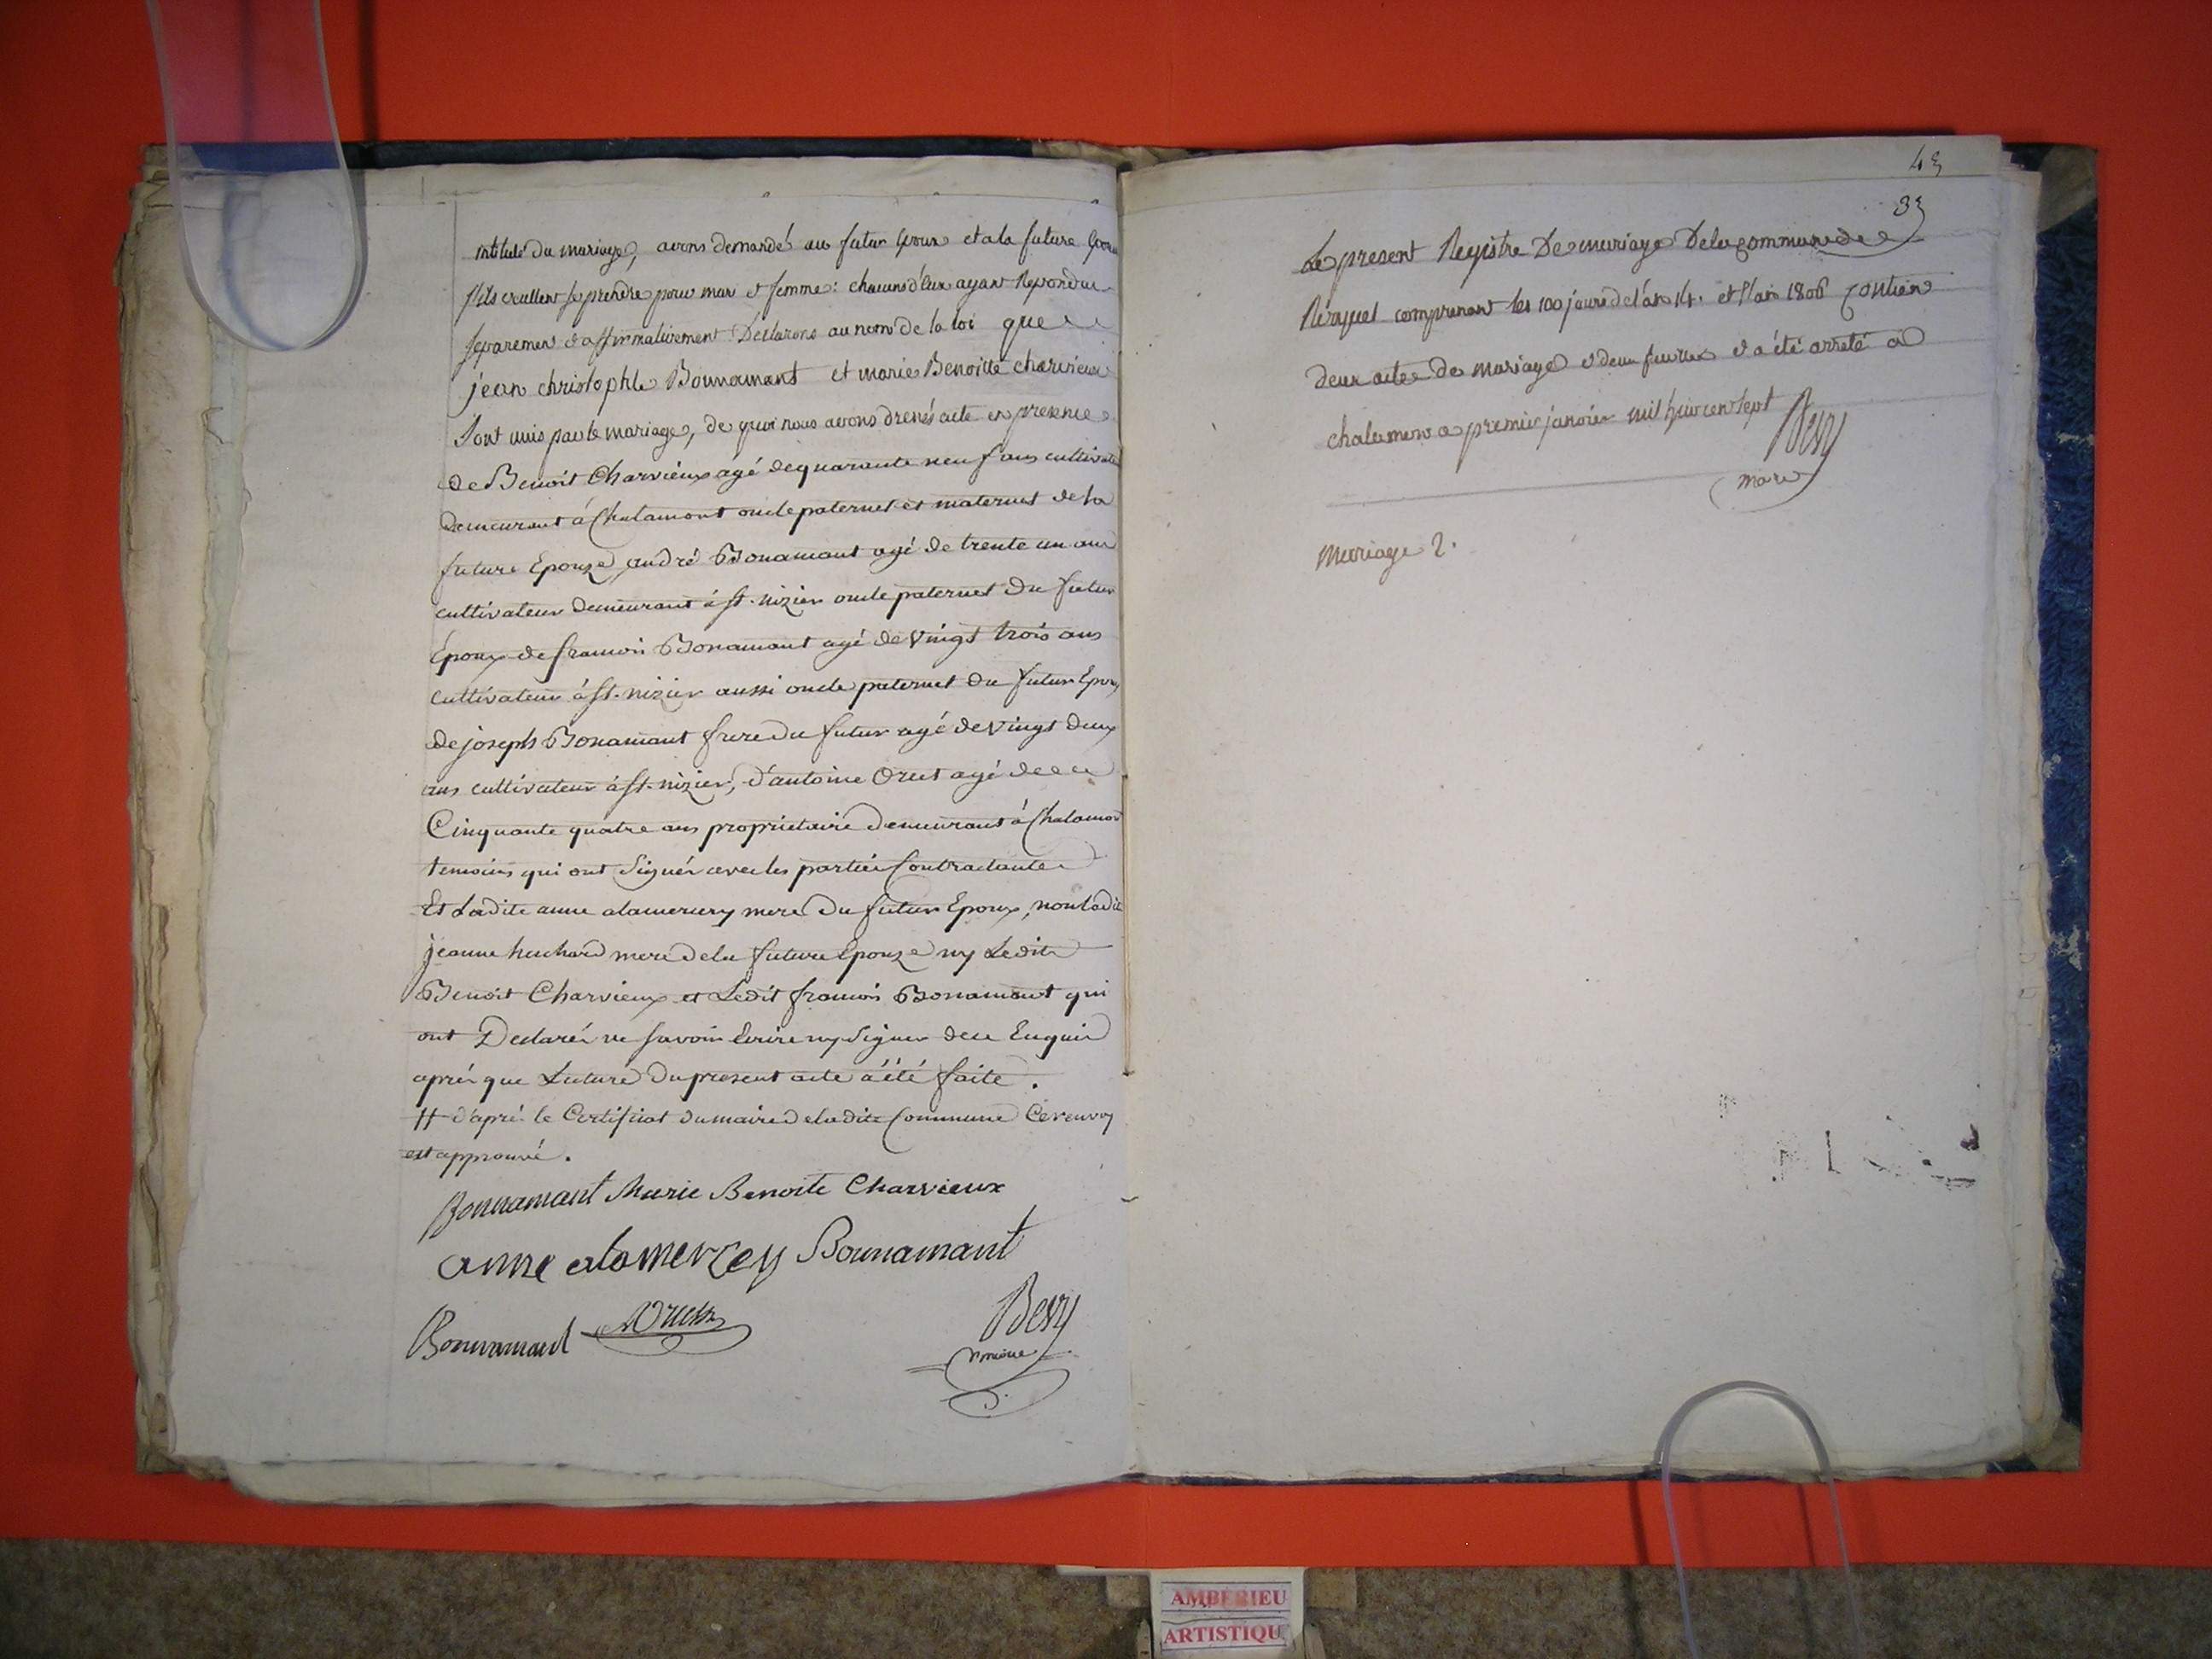 intitulé du mariage, avons demandé au futur Epoux et a la future Epouse
s'ils veullent se prendre pour mari et femme : chacuns d'eux ayant Repondu
separement et affirmativement Declarons au nom de la loi que
jean christophle Bonnamant et marie Benoitte charvieux
Sont unis par le mariage, de quoi nous avons dressés acte en presence
de Benoit Charvieux agé de quarante neuf ans cultivateur
Demeurant á Chalamont oncle paternel et maternel de la
future Epouze, andré Bonamant agé de trente un ans
cultivateur demeurant á st. nizier oncle paternel Du futur
Epoux de francois Bonamant agé de Vingt trois ans
cultivateur á st. nizier aussi oncle paternel du futur Epoux
de joseph Bonamant frere du futur agé de Vingt deux
ans cultivateur á st. nizier, d'antoine Oruet agé de
Cinquante quatre ans proprietaire Demeurant á Chalamont
temoins qui ont Signés avec les parties Contractante
Et Ladite anne alamercery mere Du futur Epoux, non ladite
jeanne huchard mere de la future Epouze ny Ledit
Benoit Charvieux et Ledit francois Bonamant qui
ont Declarés ne savoir Ecrire ny Signer de ce Enquis
aprés que Lecture du present acte á été faite.
H d'aprés le Certificat du maire de ladite Commune Ce renvoy
est approuvé.
Bonnamant Marie Benoite Charvieux
anne alamercery Bonnamant
Bonnamant
Bevy
maire
43
83
Le present Registre De mariage De la commune de
comprenant les 100 jours de l'an 14. et l'an 1806 contien
deux actes de mariage et deux feuilles et a été arreté a
chalamont ce premier janvier mil huit cent sept
Bevy
maire
Mariage 2.
AMBERIEU
ARTISTIQU